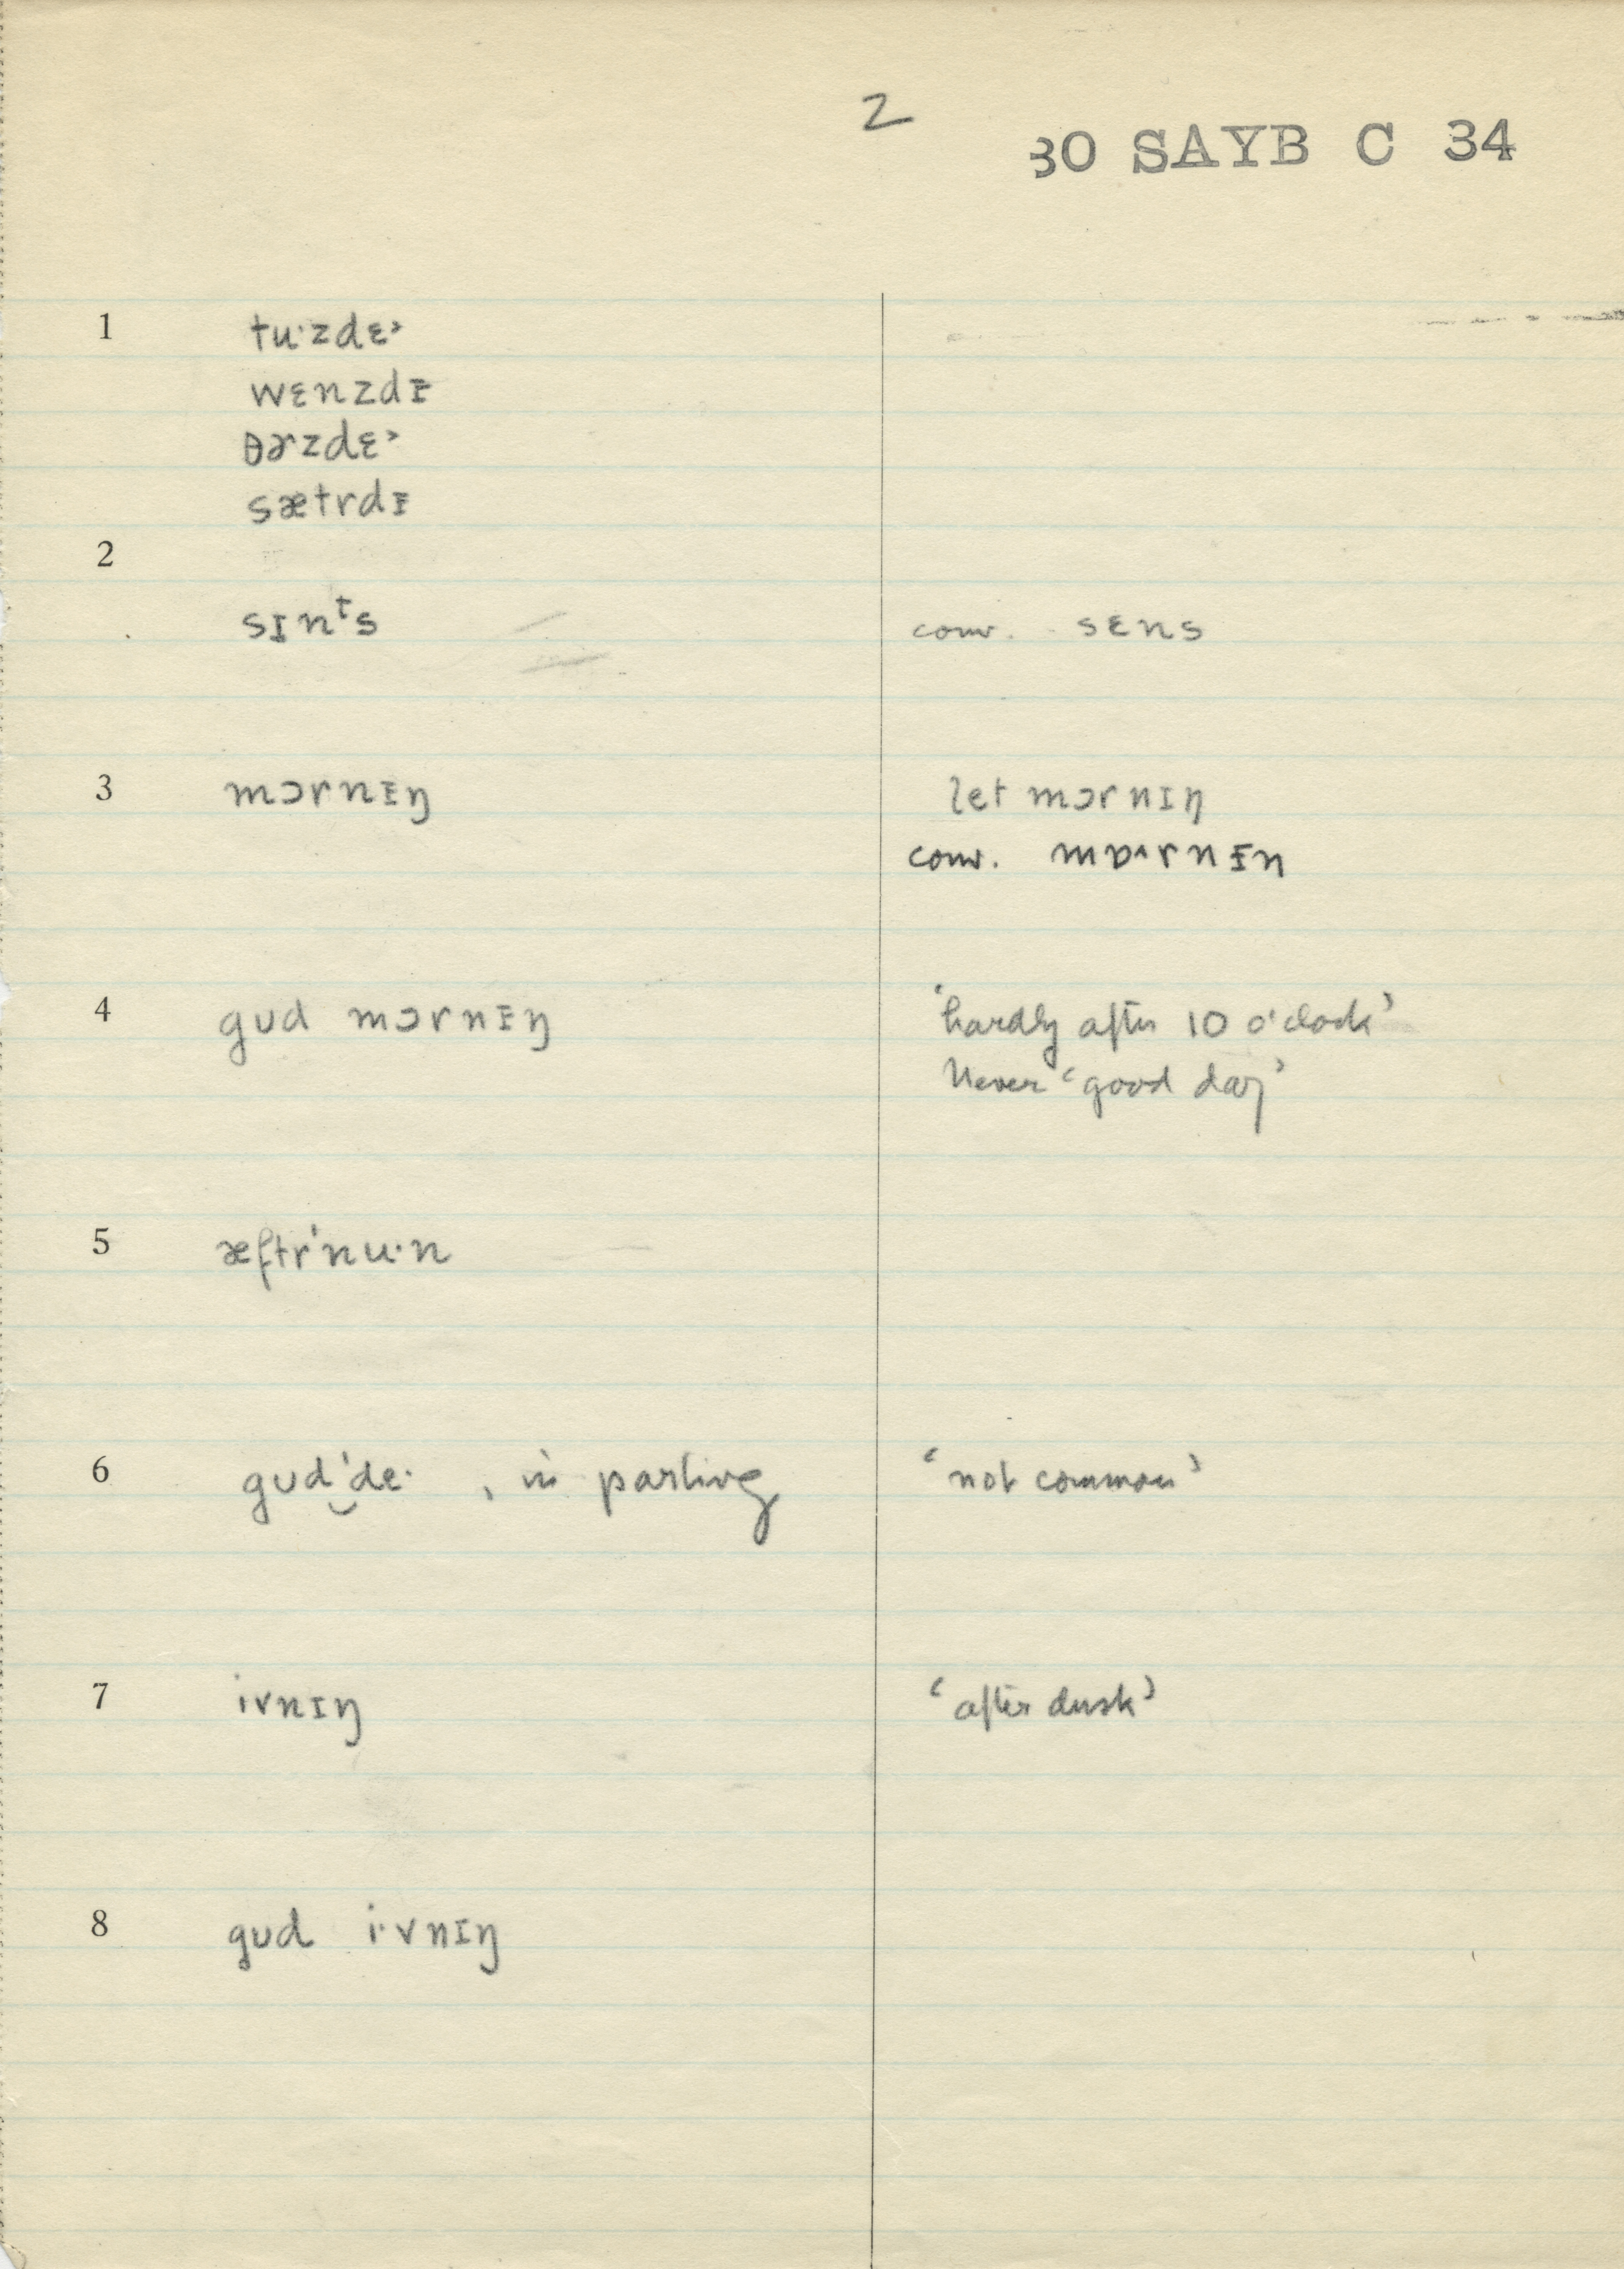 2
30 SAYB C 34
1 tu·zdɛ˃
wɛnzdᵻ
θɚzdɛ˃
sætrdᵻ
2
sɪnᵗs conv. sɛns
3 mɔrnᵻŋ let mɔrnɪŋ
conv. mɒ˄rnᵻn
4 gᴜd mɔrnᵻŋ ‘hardly after 10 o'clock’
Never ‘good day’
5 æftr'nu·n
6 gᴜd‿'de· , in parting ‘not common’
7 ivnɪŋ ‘after dusk’
8 gᴜd i·vnɪŋ